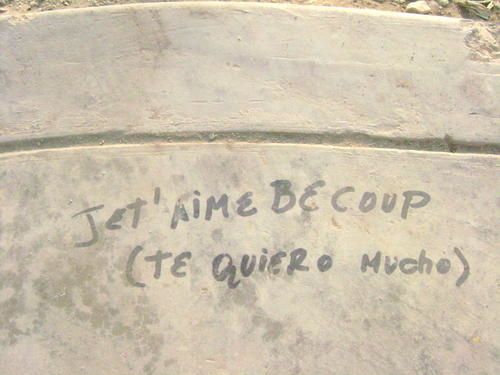 JET'AIME BECOUP
(TE QUIERO MUCHO)